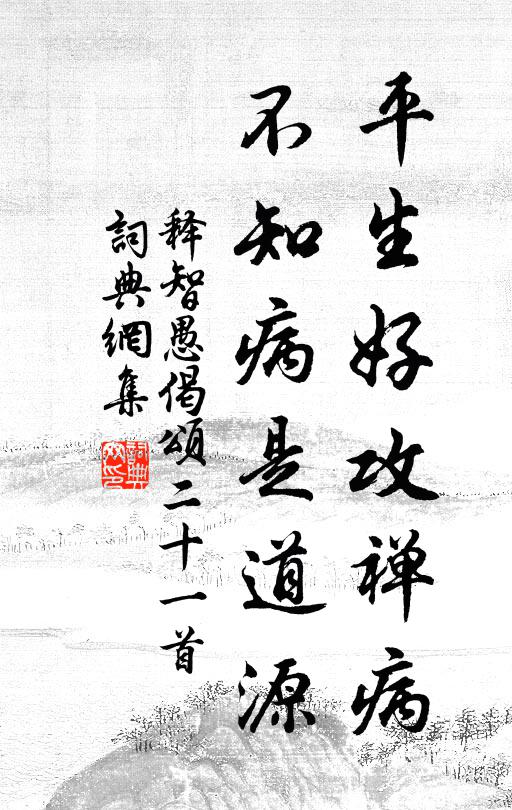 平生好攻禅病
不知病是道源
释智愚偈頌二十一首
詞典網集
詞典网印